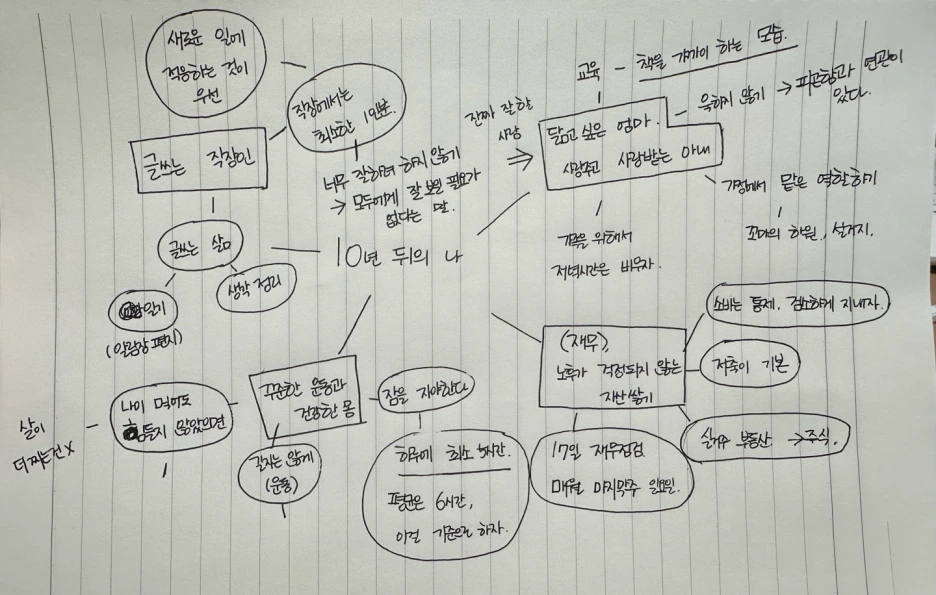 새로운 일에
적응하는 것이
우선
직장에서는
최소한 1인분.
글쓰는 직장인
너무 잘하려 하지 않기
→ 모두에게 잘 보일 필요가
없다는 말.
글쓰는 삶
생각 정리
일기
(알림장 편지)
10년 뒤의 나
교육 - 책을 가까이 하는 모습.
진짜 잘할
사람
⇒
닮고 싶은 엄마.
사랑주고 사랑받는 아내
욱하지 않기 → 피곤함과 연관이
있다.
가정에서 맡은 역할하기
꼬마의 하원, 설거지.
가족을 위해서
저녁시간은 비우자.
(재무),
노후가 걱정되지 않는
자산 쌓기
소비는 통제. 검소하게 지내자.
저축이 기본
부동산 → 주식.
17일 재무점검
매월 마지막주 일요일.
꾸준한 운동과
건강한 몸
잠을 자야한다
하루에 최소 5시간.
평균은 6시간,
이걸 기준으로 하자.
(운동)
나이 먹어도
힘들지 않았으면
살이
더 찌는건 X